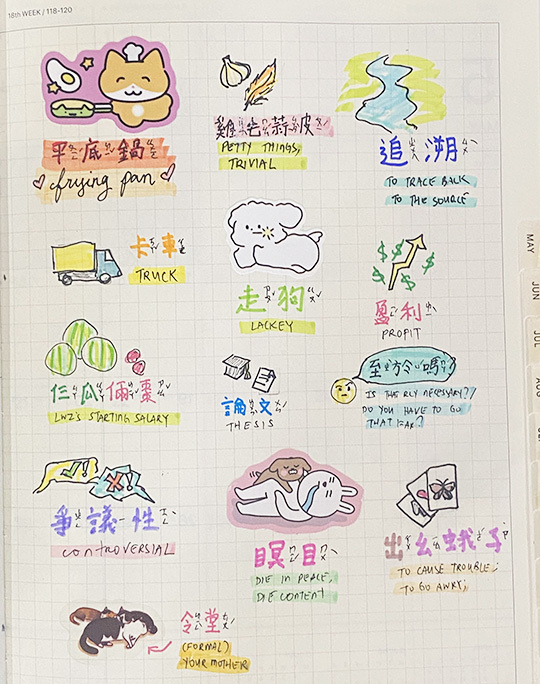 18th WEEK / 118-120
平底鍋
frying pan
雞毛蒜皮
PETTY THINGS,
TRIVIAL
追溯
TO TRACE BACK
TO THE SOURCE
卡車
TRUCK
走狗
LACKEY
$ $ $ $ $
盈利
PROFIT
仨瓜倆棗
LWZ'S STARTING SALARY
論文
THESIS
至於嗎
IS THIS RLY NECESSARY?/
DO YOU HAVE TO GO
THAT FAR?
爭議性
CONTROVERSIAL
瞑目
DIE IN PEACE,
DIE CONTENT
出幺蛾子
TO CAUSE TROUBLE;
TO GO AWRY;
令堂
(FORMAL)
YOUR MOTHER
MAY
JUN
JUL
AUG